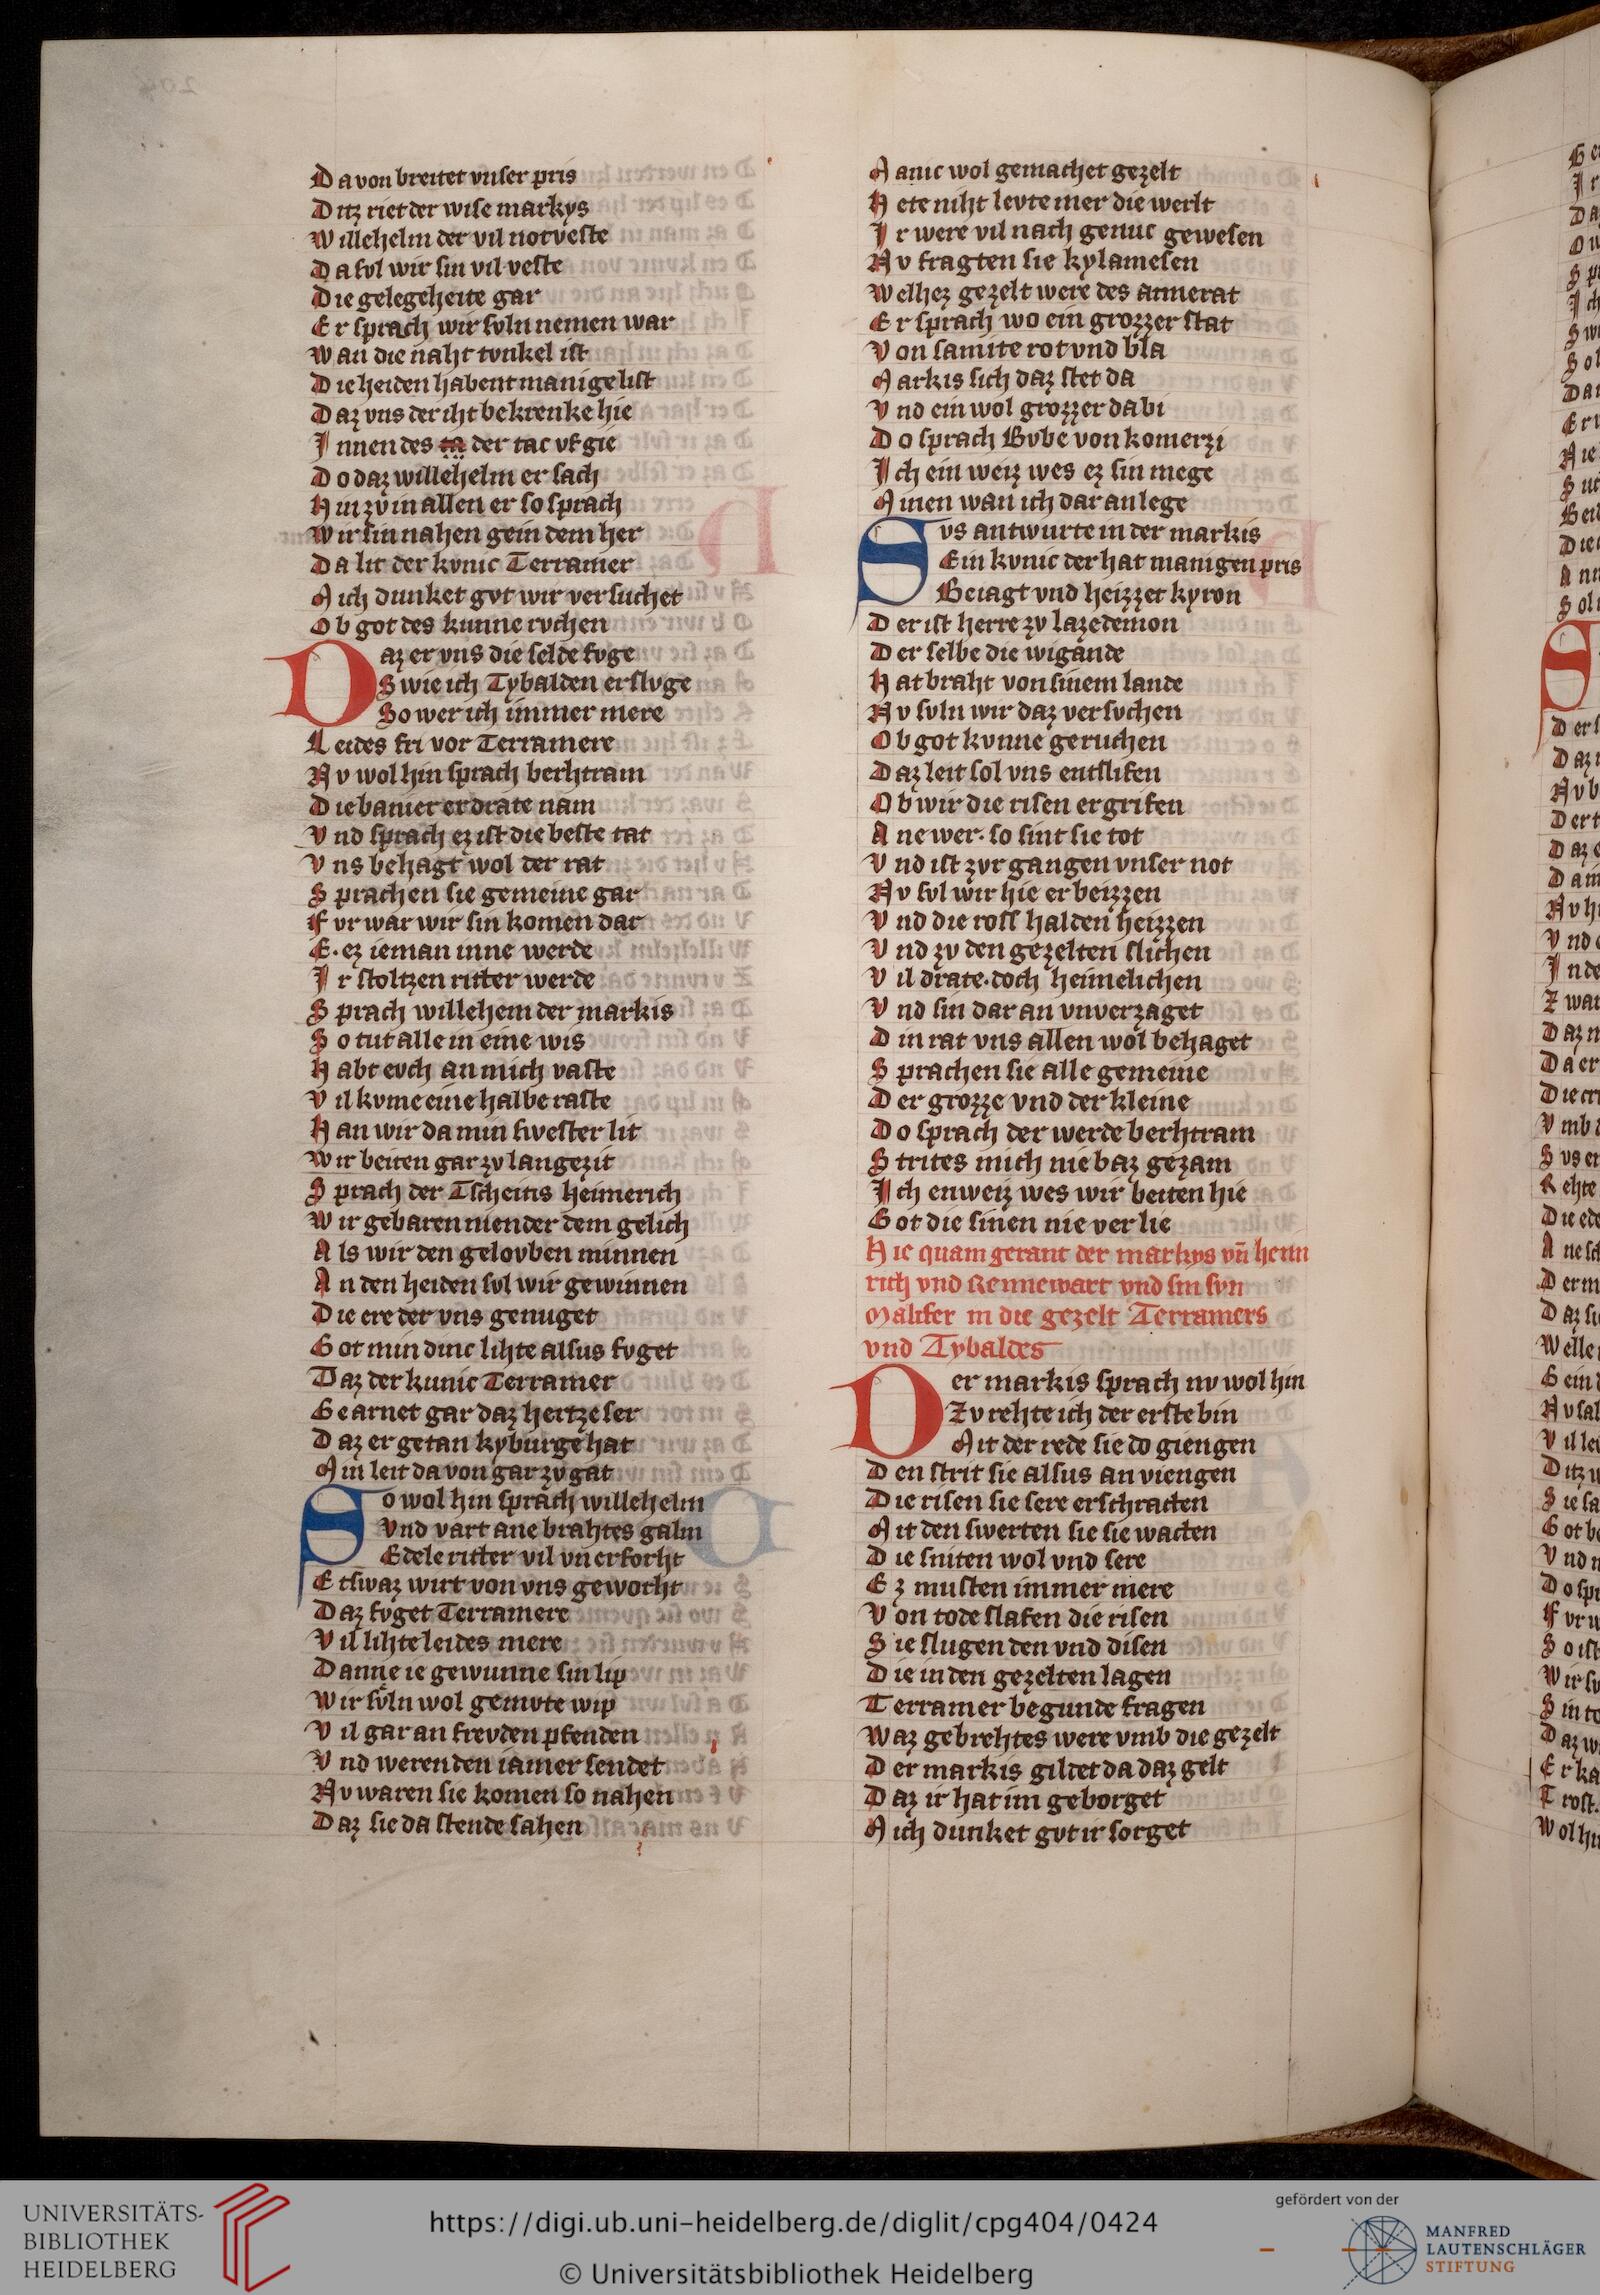 Da von breitet vnser pris
Ditz riet der wise markys
Willehelm der vil notveste
Da svl wir sin vil veste
Die gelegeheite gar
Er sprach wir svln nemen war
Wan die naht tvnkel ist
Die heiden habent manige list
Daz vns der iht bekrenke hie
Innen des ta der tac vf gie
Do daz willehelm er sach
Hin zv in allen er so sprach
Wir sin nahen gein dem her
Da lit der kvnic Terramer
Mich dunket gvt wir versuchet
Ob got des kunne rvchen
Daz er vns die selde fvge
Swie ich Tybalden erslvge
So wer ich immer mere
Leides fri vor Terramere
Nv wol hin sprach berhtram
Die banier er drate nam
Vnd sprach ez ist die beste tat
Vns behagt wol der rat
Sprachen sie gemeine gar
Fvr war wir sin komen dar
E. ez ieman inne werde
Ir stoltzen ritter werde
Sprach willehem der markis
So tut alle in eine wis
Habt evch an mich vaste
Vil kvme eine halbe raste
Han wir da min swester lit
Wir beiten gar zv lange zit
Sprach der Tscheitis heimerich
Wir gebaren niender dem gelich
Als wir den gelovben minnen
An den heiden svl wir gewinnen
Die ere der vns genuget
Got min dinc lihte alsus fvget
Daz der kunic Terramer
Gearnet gar daz hertze ser
Daz er getan kyburge hat
Min leit da von gar zvgat
So wol hin sprach willehelm
Vnd vart ane brahtes galm
Edele ritter vil vnerforht
Etswaz wirt von vns geworht
Daz fvget Terramere
Vil lihte leides mere
Danne ie gewunne sin lip
Wir svln wol gemvte wip
Vil gar an frevden pfenden
Vnd werenden iamer sendet
Nv waren sie komen so nahen
Daz sie da stende sahen
Manic wol gemachet gezelt
Hete niht levte mer die werlt
Ir were vil nach genuc gewesen
Nv fragten sie kylamesen
Welhez gezelt were des ammerat
Er sprach wo ein grozzer stat
Von samite rot vnd bla
Markis sich daz stet da
Vnd ein wol grozzer da bi
Do sprach Bvbe von komerzi
Ich ein weiz wes ez sin mege
Minen wan ich dar an lege
Svs antwurte in der markis
Ein kvnic der hat manigen pris
Beiagt vnd heizzet kyron
Der ist herre zv lazedemon
Der selbe die wigande
Hat braht von sinem lande
Nv svln wir daz versvchen
Ob got kvnne geruchen
Daz leit sol vns entslifen
Ob wir die risen ergrifen
Ane wer. so sint sie tot
Vnd ist zvrgangen vnser not
Nv svl wir hie erbeizzen
Vnd die ross halden heizzen
Vnd zv den gezelten slichen
Vil drate. doch heimelichen
Vnd sin dar an vnverzaget
Din rat vns allen wol behaget
Sprachen sie alle gemeine
Der grozze vnd der kleine
Do sprach der werde berhtram
Strites mich nie baz gezam
Ich enweiz wes wir beiten hie
Got die sinen nie verlie
Hie quam gerant der markys vn̄ hein
rich vnd Rennewart vnd sin svn
Malifer in die gezelt Terramers
vnd Tybaldes
Der markis sprach nv wol hin
Zv rehte ich der erste bin
Mit der rede sie do giengen
Den strit sie alsus an viengen
Die risen sie sere erschracten
Mit den swerten sie sie wacten
Die sniten wol vnd sere
Ez musten immer mere
Von tode slafen die risen
Sie slugen den vnd disen
Die in den gezelten lagen
Terramer begunde fragen
Waz gebrehtes were vmb die gezelt
Der markis gildet da daz gelt
Daz ir hat im geborget
Mich dunket gvt ir sorget
UNIVERSITÄTS-
BIBLIOTHEK
HEIDELBERG
https://digi.ub.uni-heidelberg.de/diglit/cpg404/0424
© Universitätsbibliothek Heidelberg
gefördert von der
MANFRED
LAUTENSCHLÄGER
STIFTUNG